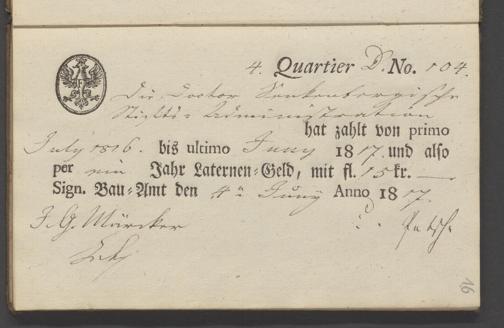 4. Quartier D. No. 104.
Die Doctor Senkenbergische
Stifts-Administration
hat zahlt von primo
July 1816. bis ultimo Juny 1817. und also
per ein Jahr Laternen-Geld, mit fl. 15 kr. —
Sign. Bau-Amt den 4n Juny Anno 1817.
J. G. Märcker
16